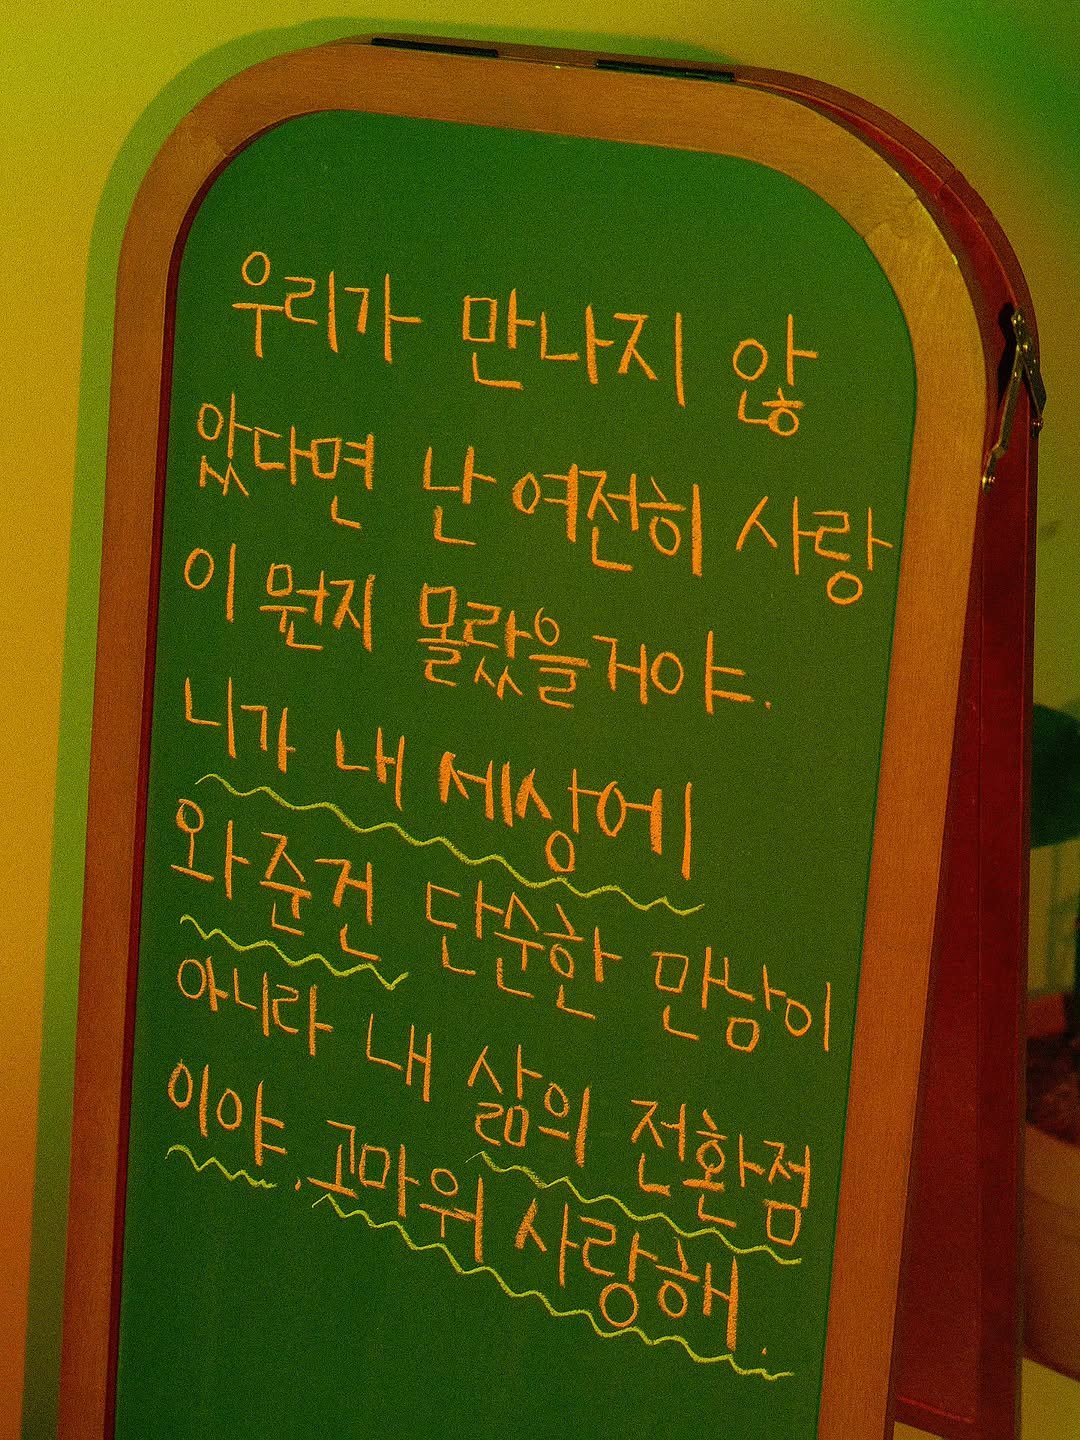 우리가 만나지 않
았다면 난 여전히 사랑
이 뭔지 몰랐을거야.
니가 내 세상에
와준건 단순한 만남이
아니라 내 삶의 전환점
이야. 고마워 사랑해.